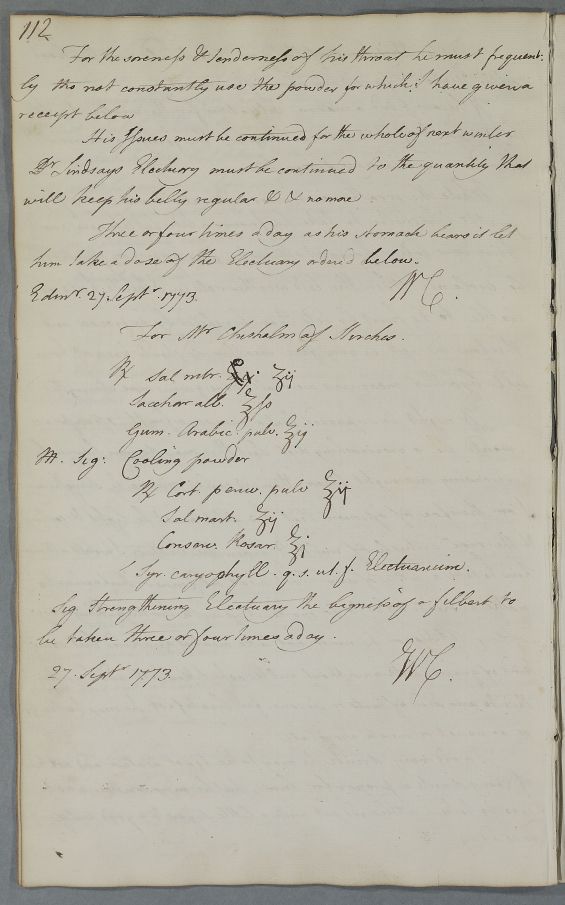 112
For the soreness & tenderness of his throat he must frequent-
ly tho not constantly use the powder for which I have given a
receipt below
His Issues must be continued for the whole of next winter
Dr Lindsays Electuary must be continued to the quantity that
will keep his belly regular & no more
Three or four times a day as his stomach bears it let
him take a dose of the Electuary ordered below.
Edinr. 27 Septr. 1773. WC.
For Mr Chisholm of
℞ Sal nitr. ʒij
Sacchar alb. ℥ſs
Gum. Arabic. pulv. ʒij
M. Sig: Cooling powder
℞ Cort. peruv. pulv ℥ij
Sal mart. ʒij
Conserv. Rosar. ℥j
Syr. caryophyll. q. s. ut. f. Electuarium.
Sig Strengthining Electuary the bigness of a filbert to
be taken three or four times a day.
27. Septr 1773. WC.